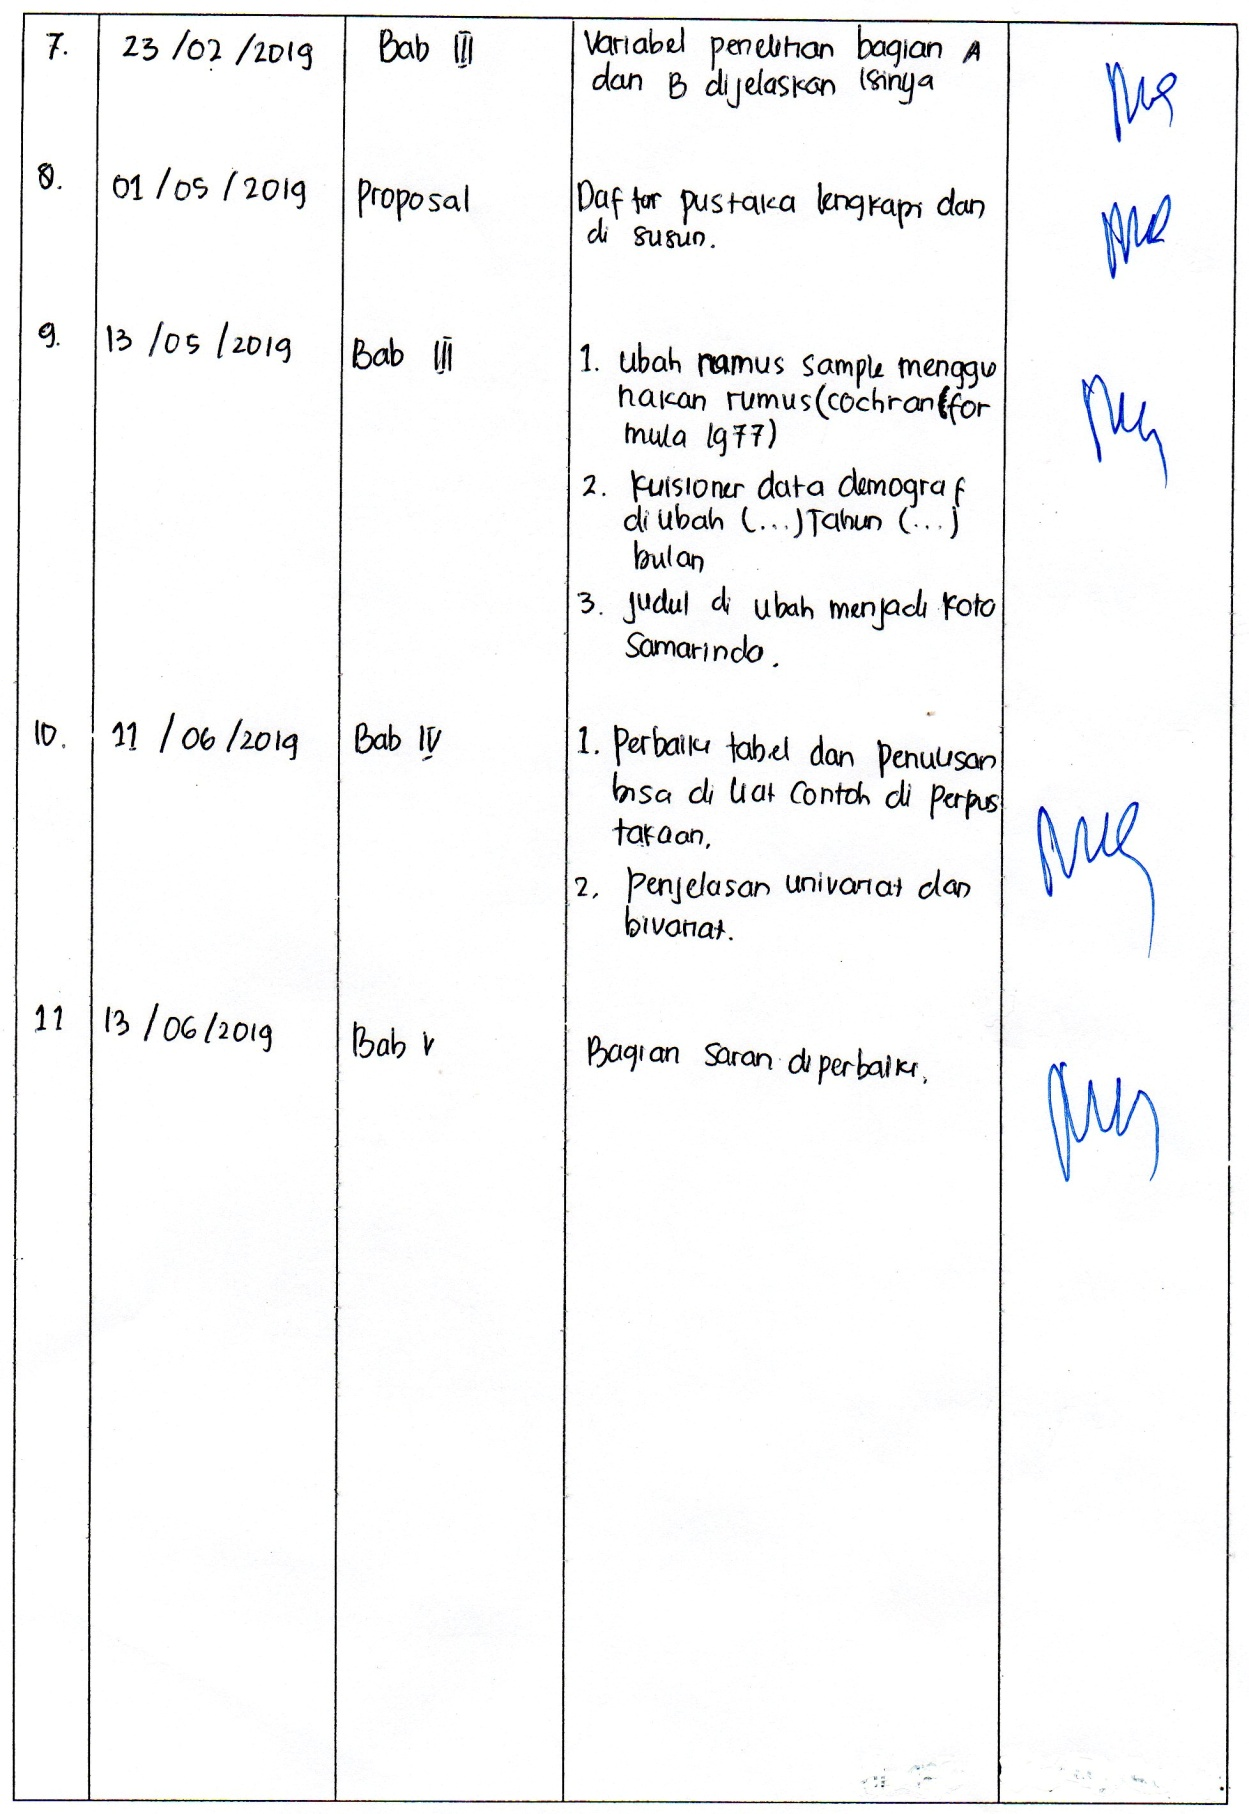 7. 23/02/2019 Bab III Variabel penelitian bagian A
dan B dijelaskan isinya
8. 01/05/2019 Proposal Daftar pustaka lengkapi dan
di susun.
9. 13/05/2019 Bab III
1. ubah rumus sample menggu
nakan rumus (cochran for
mula 1977)
2. kuisioner data demograf
di ubah (...) Tahun (...)
bulan
3. Judul di ubah menjadi Kota
Samarinda.
10. 11/06/2019 Bab IV 1. Perbaiki tabel dan Penulisan
bisa di liat Contoh di Perpus
takaan.
2. Penjelasan univariat dan
bivariat.
11 13/06/2019 Bab V Bagian saran diperbaiki.